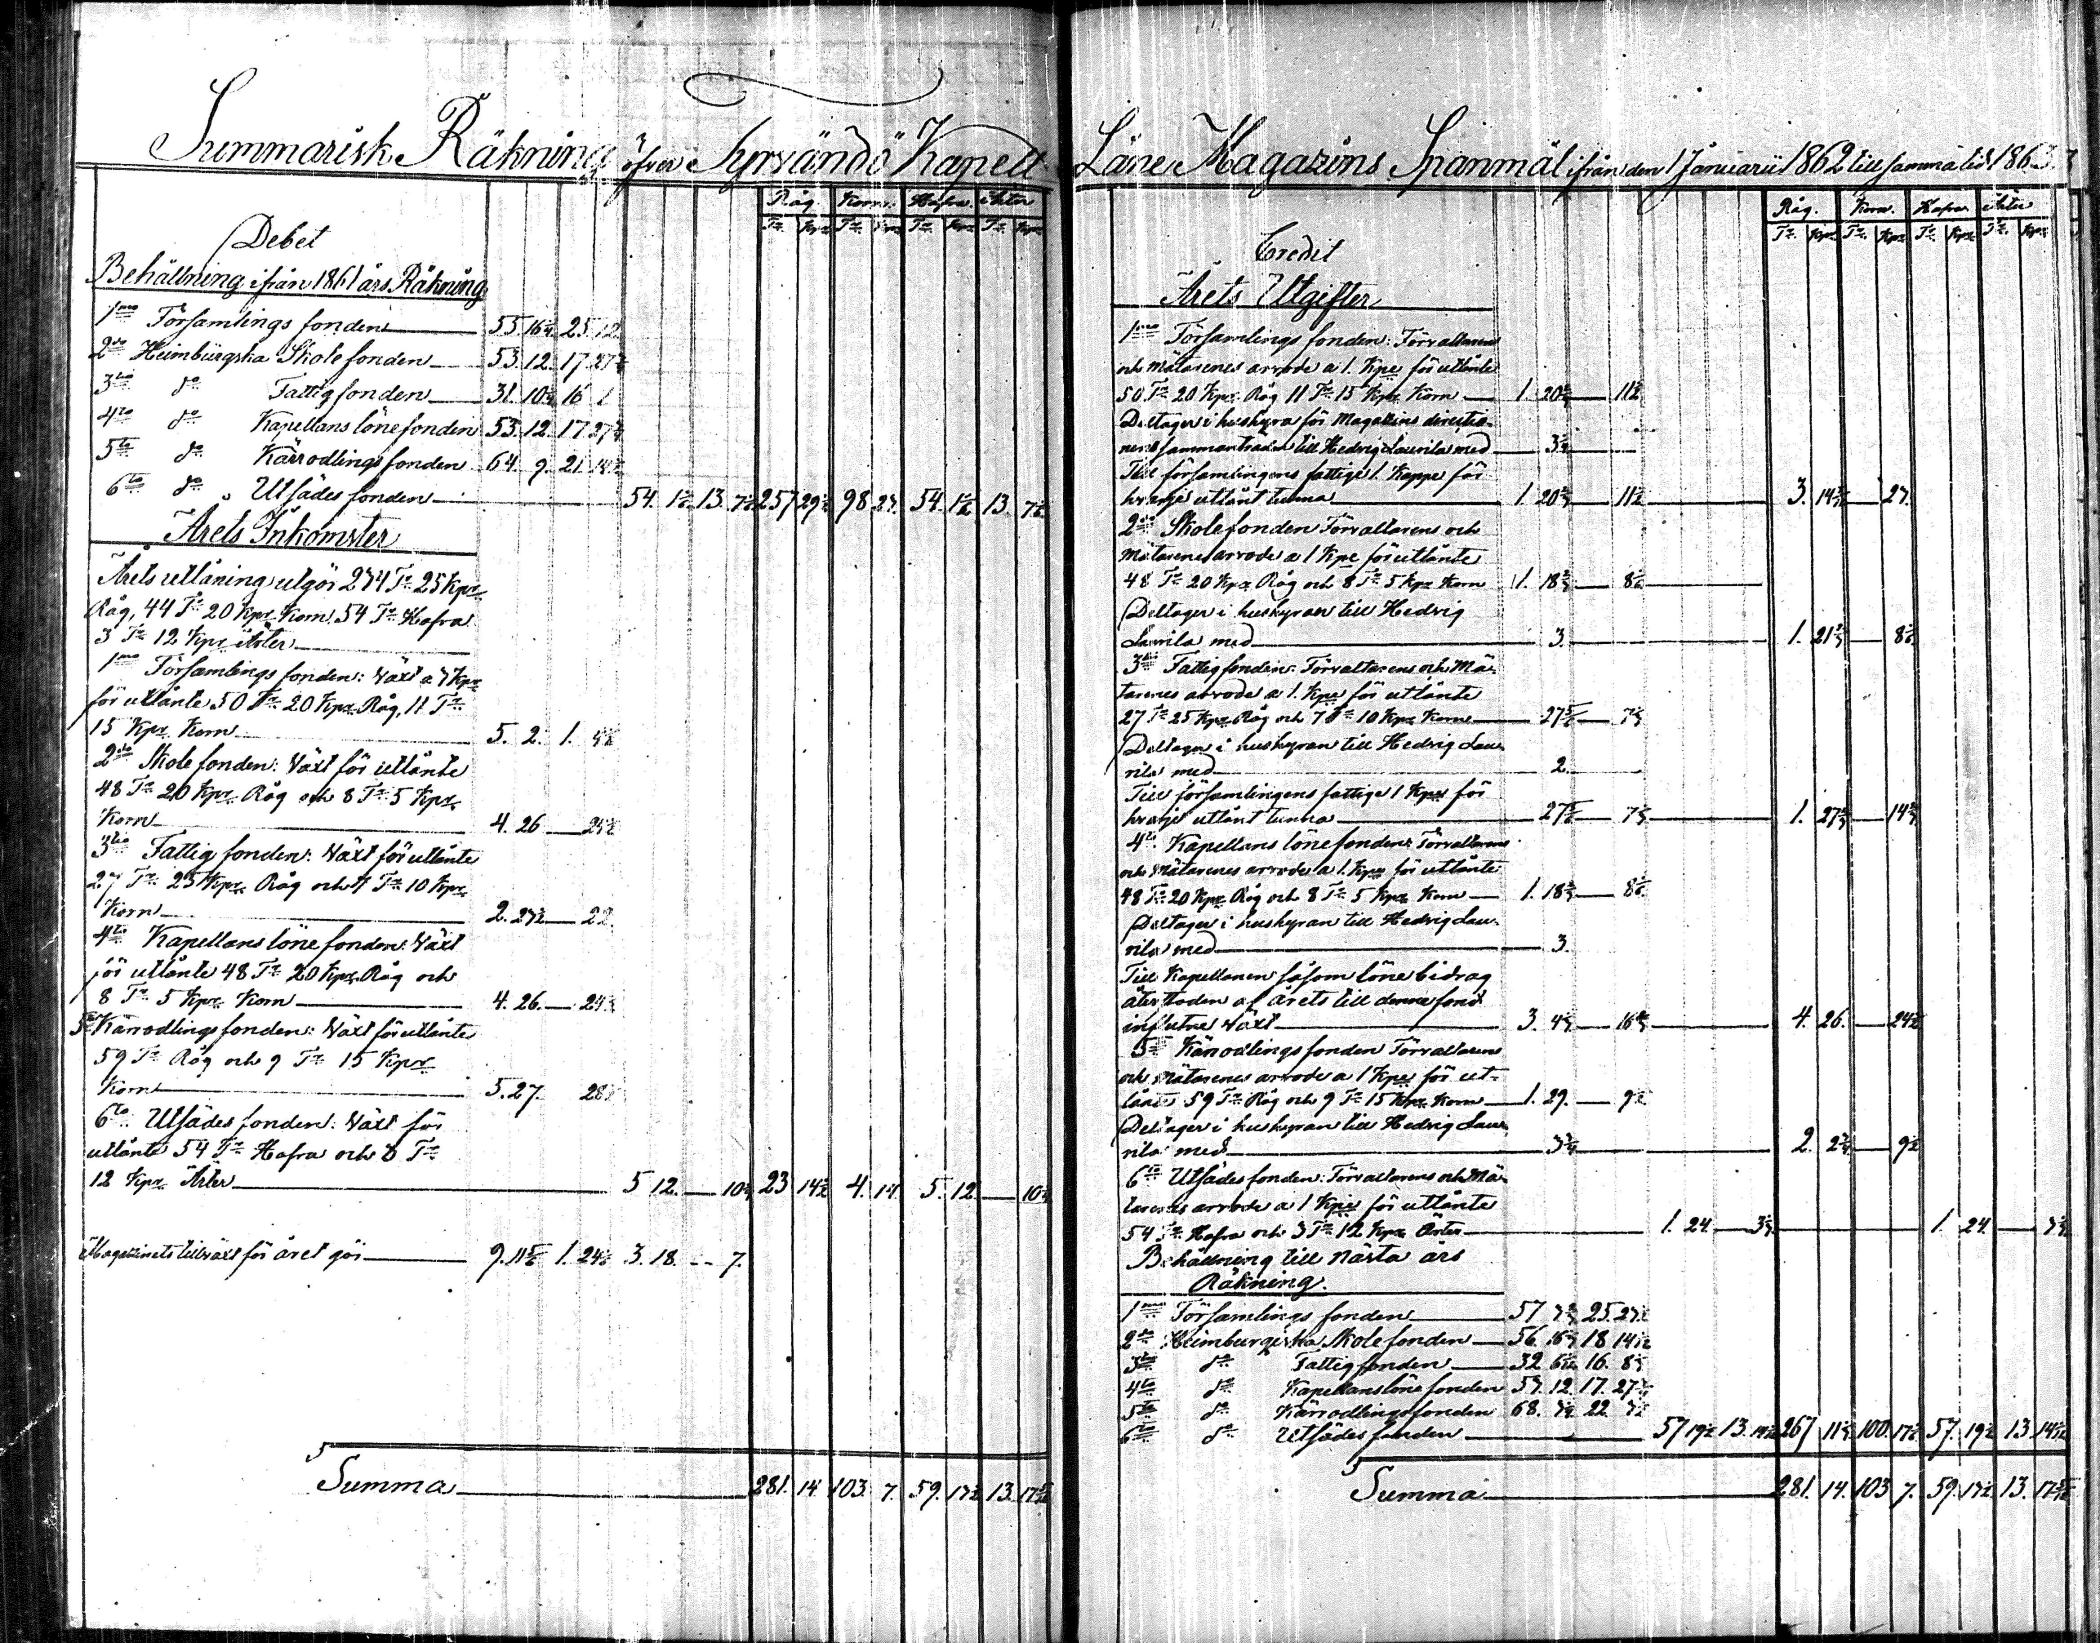 Summarisk Räkning öfver Syrvändö Kapell
Råg. Korn. Hafra. Ärter
Tr Kpr Tr Kpr Tr Kpr Tr Kpr
Debet
Behållning ifrån 1861 års Räkning
1mo Församlings fonden 55. 16 25 12
2do Heimbürgska Skole fonden 53. 12. 17
3tio do Fattig fonden 31. 16
4to do Kapellans lönefonden 53. 12. 17
5to do Kärrodlings fonden 64. 9. 21
6to do Utsädes fonden 54. 1½ 13. 7½ 257 29½ 98 27. 54. 1½ 13. 7½
Årets Inkomster
Årets utlåning utgör 234 Tr 25 Kpr
Råg, 44 Tr 20 Kpr Korn, 54 Tr Hafra
3 Tr 12 Kpr Ärter
1mo Församlings fonden: Växt a Kpr
för utlånte 50 Tr 20 Kpr Råg, 11 Tr
15 Kpr Korn 5. 2. 1.
2do Skole fonden: Växt för utlånte
48 Tr 20 Kpr Råg och 8 Tr 5 Kpr
Korn 4. 26 24½
3tio Fattig fonden: Växt för utlånte
27 Tr 25 Kpr Råg och 7 Tr 10 Kpr
Korn 2. 23½ 22.
4to Kapellans löne fonden: Växt
för utlånte 48 Tr 20 Kpr Råg och
8 Tr 5 Kpr Korn 4. 26. 24½
5to Kärrodlings fonden: Växt för utlånte
59 Tr Råg och 9 Tr 15 Kpr
Korn 5. 27. 28½
6to Utsädes fonden: Växt för
utlånte 54 Tr Hafra och 3 Tr
12 Kpr Ärter 5 12. 10 23 14½ 4. 14. 5. 12. 10
Magazinets tillväxt för året gör 9. 1. 3. 18. 7.
Summa 281. 14 103. 7. 59. 13½ 13.
Låne Magazins Spanmål ifrån den 1 Januarii 1862 till samma tid 1863.
Råg. Korn. Hafra Ärter
Tr Kpr Tr Kpr Tr Kpr Tr Kpr
Credit
Årets Utgifter
1mo Församlings fonden: Förvaltarens
och mätarenes arvode a 1. Kpr för utlånte
50 Tr 20 Kpr Råg 11 Tr 15 Kpr Korn 1. 20⅔ 11½
Deltager i hushyra för Magazins directio-
nens sammanträden till Hedvig Laurila med
Till församlingens fattige 1. Kappe för
hvarje utlånt tunna 1. 20⅔ 11½ 3. 27.
2do Skole fonden Förvaltarens och
Mätarenes arvode a 1 Kpr för utlånte
48 Tr 20 Kpr Råg och 8 Tr 5 Kpr Korn 1. 18⅔ 8⅙
Deltager i hushyran till Hedvig
Laurila med 3. 1. 21⅔ 8⅙
3tio Fattig fonden: Förvaltarens och Mä-
tarenes arvode a 1. Kpr för utlånte
27 Tr 25 Kpr Råg och 7 Tr 10 Kpr Korn 27⅚ 7⅓
Deltager i hushyran till Hedvig Lau-
rila med 2.
Till församlingens fattige 1 Kpr för
hvarje utlånt tunna 27⅚ 7⅓ 1. 27⅔ 14⅔
4to Kapellans löne fonden: Förvaltarens
och Mätarenes arvode a 1. Kpr för utlånte
48 Tr 20 Kpr Råg och 8 Tr 5 Kpr Korn 1. 18⅔ 8⅙
Deltager i hushyran till Hedvig Lau-
rila med 3.
Till Kapellanen såsom löne bidrag
återstoden af årets till denna fond
influtne Växt 3. 4⅓ 16⅓ 4. 26. 24½
5to Kärrodlings fonden Förvaltarens
och Mätarenes arvode a 1 Kpr för ut-
lånte 59 Tr Råg och 9 Tr 15 Kpr Korn 1. 29. 9½
Deltager i hushyran till Hedvig Lau-
rila med 2. 9½
6to Utsädes fonden: Förvaltarens och Mä-
tarenes arvode a 1 Kpr för utlånte
54 Tr Hafra och 3 Tr 12 Kpr Ärter 1. 24 1. 24.
Behållning till nästa års
Räkning.
1mo Församlings fonden 57 25.
2do Heimburgiska Skole fonden 56. 18
3tio do Fattig fonden 32 16.
4to do Kapellans löne fonden 12. 17.
5to do Kärrodlings fonden 68. 22.
6to do Utsädes fonden 57 19½ 13. 267 100. 57. 19½ 13.
Summa 281. 14. 103 7. 59. 13½ 13.